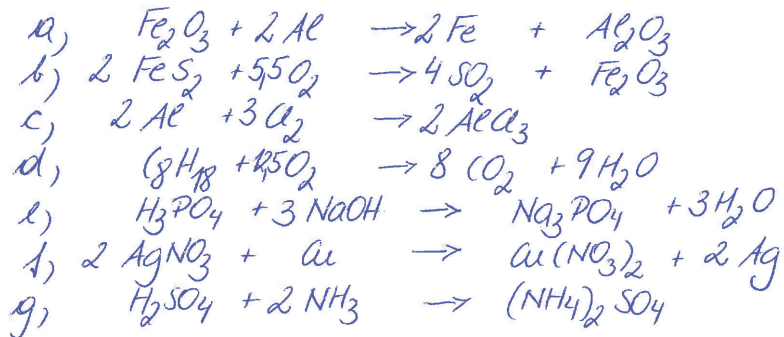 a) Fe₂O₃ + 2 Al → 2 Fe + Al₂O₃
b) 2 FeS₂ + 5,5 O₂ → 4 SO₂ + Fe₂O₃
c) 2 Al + 3 Cl₂ → 2 AlCl₃
d) C₈H₁₈ + 12,5 O₂ → 8 CO₂ + 9 H₂O
e) H₃PO₄ + 3 NaOH → Na₃PO₄ + 3 H₂O
f) 2 AgNO₃ + Cu → Cu(NO₃)₂ + 2 Ag
g) H₂SO₄ + 2 NH₃ → (NH4)₂ SO₄